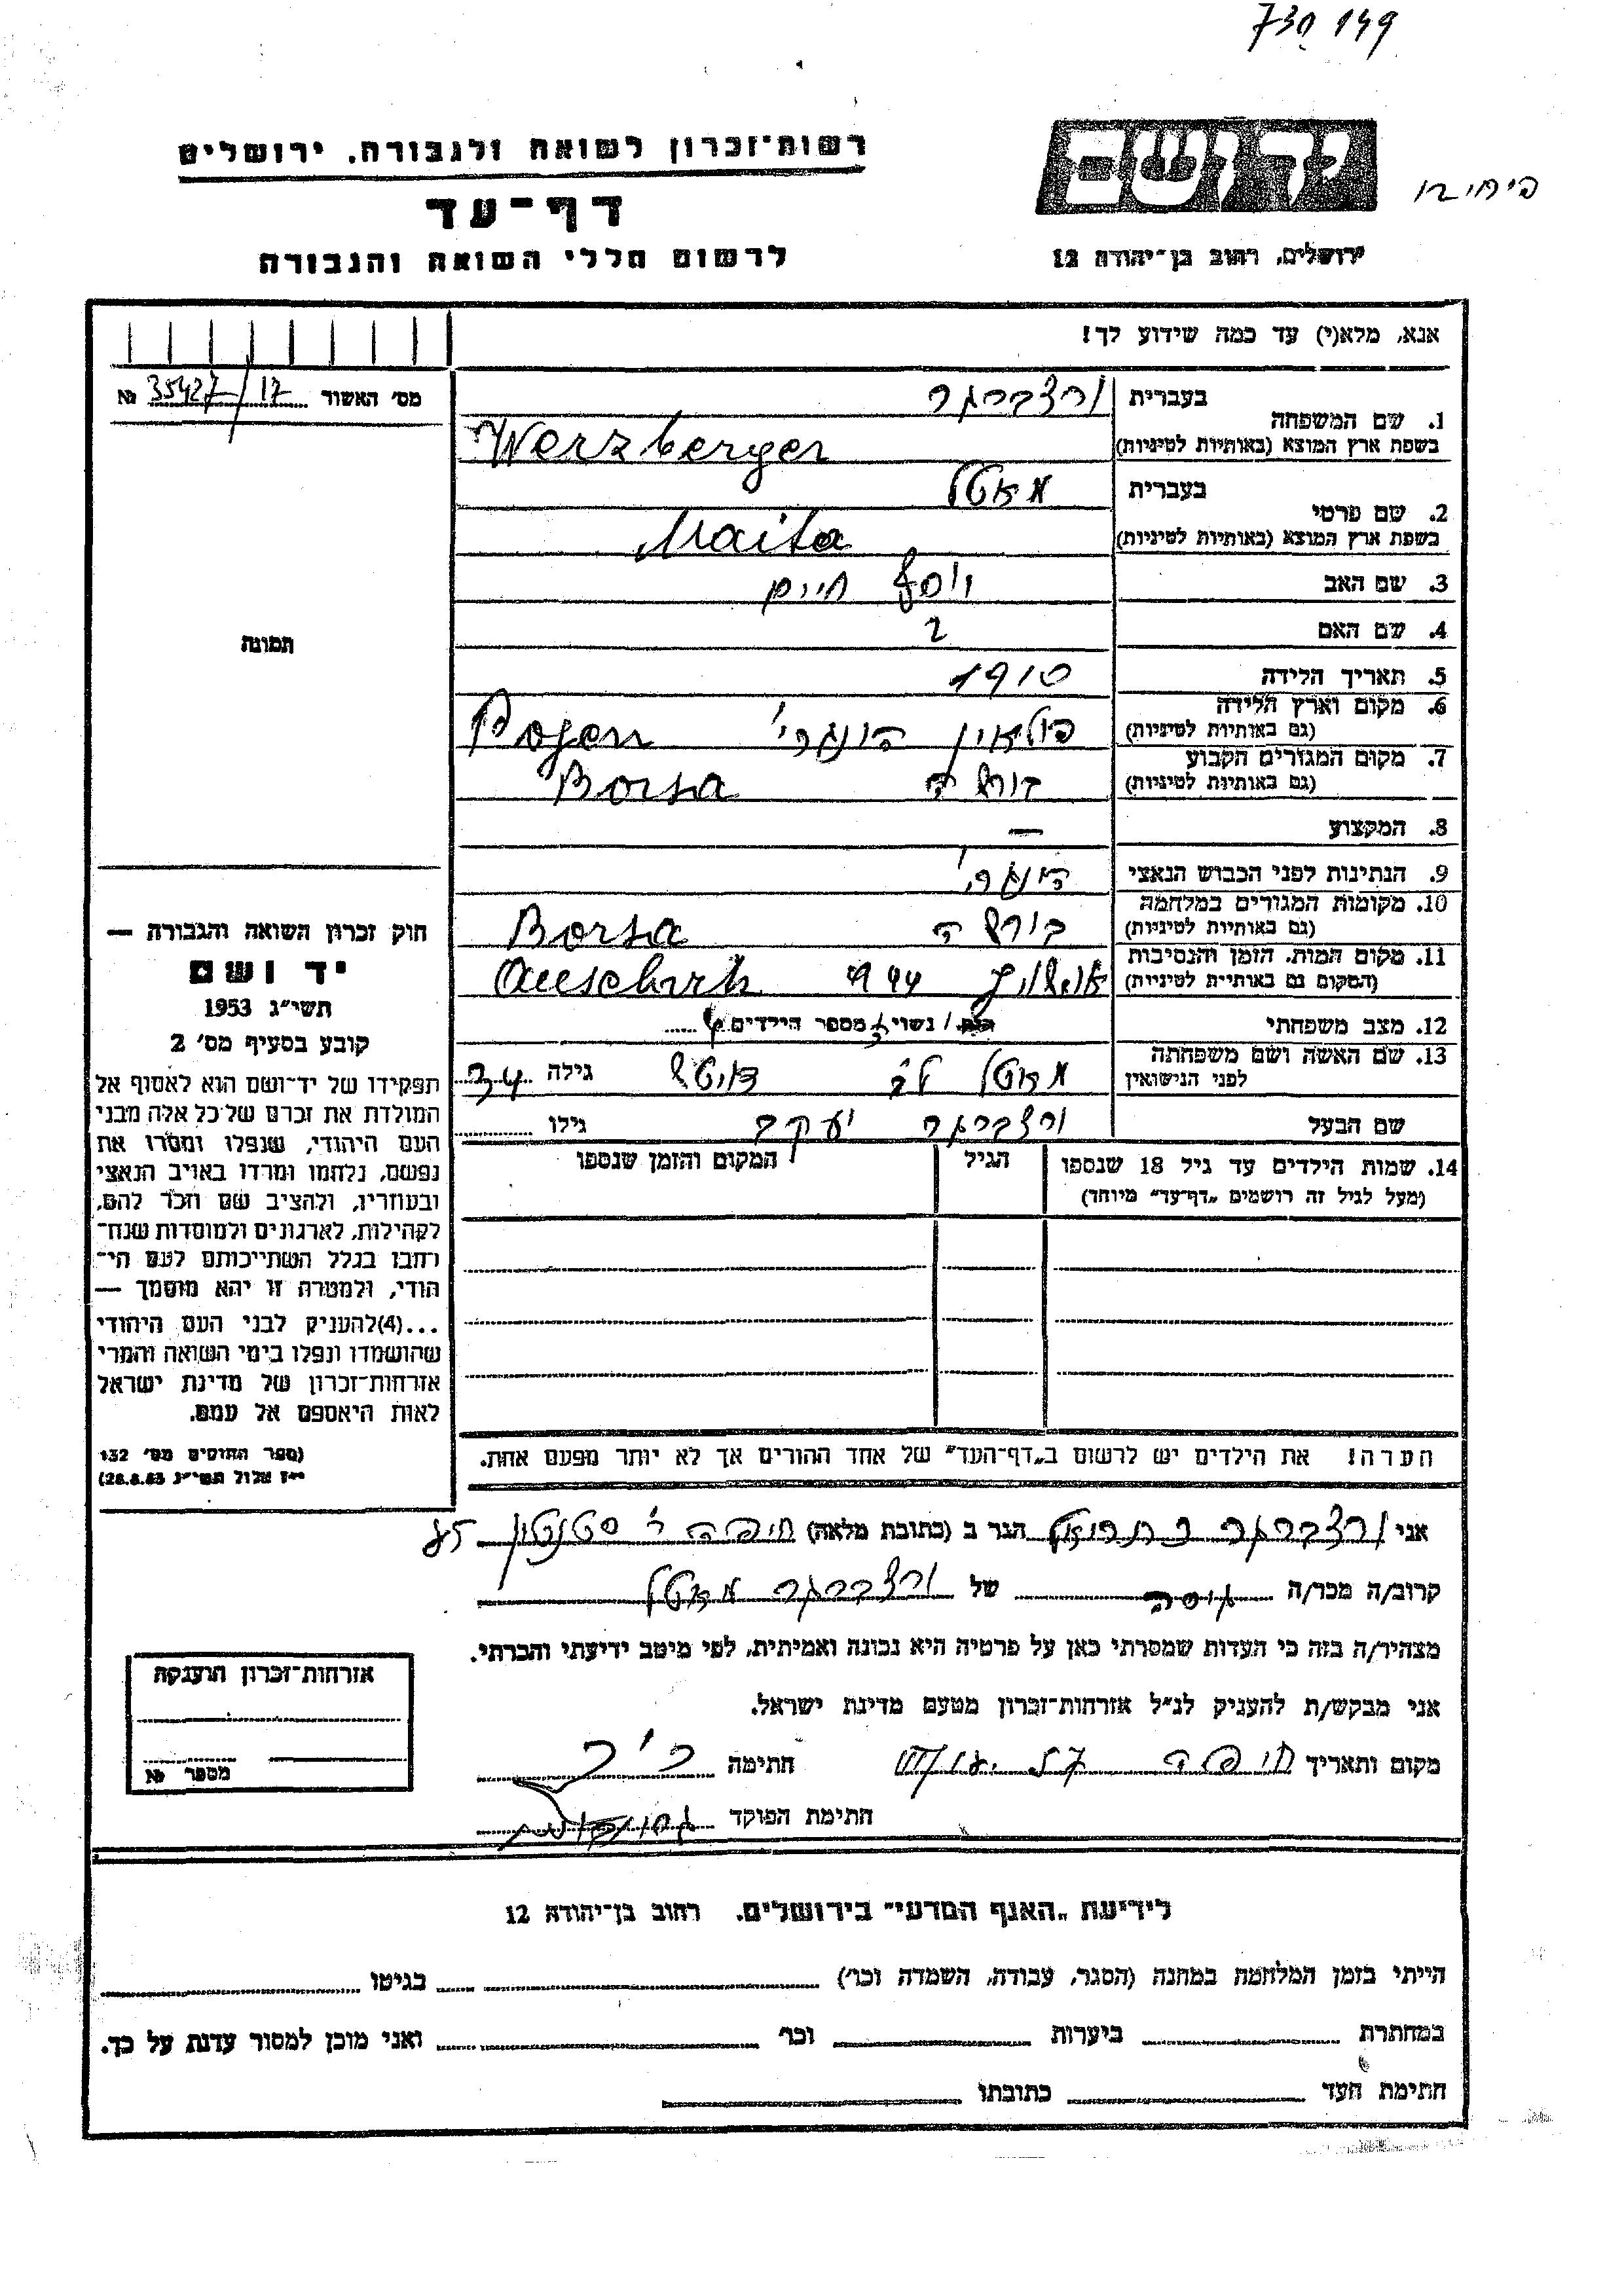 730 149
יד ושם
רשות־זכרון לשואה ולגבורה, ירושלים
דף־עד
ירושלים, רחוב בן־יהודה 12
לרשום חללי השואה והגבורה
אנא, מלא(י) עד כמה שידוע לך!
מס׳ האשור 35427/17 №
1. שם המשפחה בעברית ורצברגר
בשפת ארץ המוצא (באותיות לטיניות) Werzberger
2. שם פרטי בעברית מאטל
בשפת ארץ המוצא (באותיות לטיניות) Maita
3. שם האב יוסף חיים
4. שם האם
תמונה
5. תאריך הלידה 1910
6. מקום וארץ הלידה
(גם באותיות לטיניות)
7. מקום המגורים הקבוע
(גם באותיות לטיניות) Borsa
8. המקצוע —
9. הנתינות לפני הכבוש הנאצי
10. מקומות המגורים במלחמה
(גם באותיות לטיניות) בורשה Borsa
11. מקום המות, הזמן והנסיבות
(המקום גם באותיות לטיניות)
12. מצב משפחתי רווק / נשוי / מספר הילדים
13. שם האשה ושם משפחתה
לפני הנישואין מאטל לב גילה 34
שם הבעל ורצברגר יעקב גילו
14. שמות הילדים עד גיל 18 שנספו הגיל המקום והזמן שנספו
(מעל לגיל זה רושמים „דף־עד” מיוחד)
הערה! את הילדים יש לרשום ב„דף־העד” של אחד ההורים אך לא יותר מפעם אחת.
חוק זכרון השואה והגבורה —
יד ושם
תשי״ג 1953
קובע בסעיף מס׳ 2
תפקידו של יד־ושם הוא לאסוף אל
המולדת את זכרם של כל אלה מבני
העם היהודי, שנפלו ומסרו את
נפשם, נלחמו ומרדו באויב הנאצי
ובעוזריו, ולהציב שם וזכר להם,
לקהילות, לארגונים ולמוסדות שנח־
רחבו בגלל השתייכותם לעם הי־
הודי, ולמטרה זו יהא מוסמך —
...(4)להעניק לבני העם היהודי
שהושמדו ונפלו בימי השואה והמרי
אזרחות־זכרון של מדינת ישראל
לאות היאספם אל עמם.
(ספר החוקים מס׳ 132
י״ז אלול תשי״ג 28.8.53)
אני ורצברגר הגר ב (כתובת מלאה) חיפה
קרוב/ה מכר/ה גיסה של ורצברגר מאטל
מצהיר/ה בזה כי העדות שמסרתי כאן על פרטיה היא נכונה ואמיתית, לפי מיטב ידיעתי והכרתי.
אני מבקש/ת להעניק לנ״ל אזרחות־זכרון מטעם מדינת ישראל.
מקום ותאריך חיפה חתימה
חתימת הפוקד
אזרחות־זכרון הוענקה
מספר №
לידיעת „האגף המדעי” בירושלים, רחוב בן־יהודה 12
הייתי בזמן המלחמה במחנה (הסגר, עבודה, השמדה וכר׳) בגיטו
במחתרת ביערות וכר׳ ואני מוכן למסור עדות על כך.
חתימת העד כתובתו